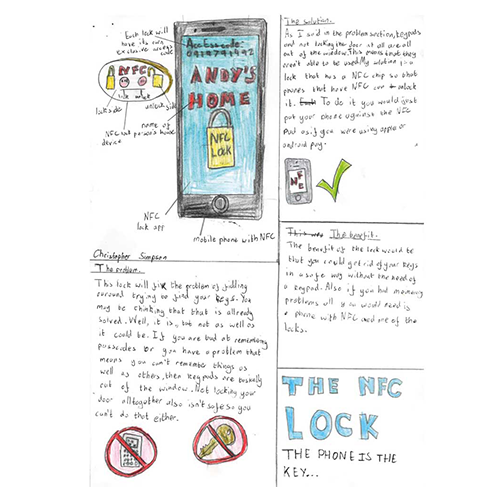 Each lock will
have its own
exclusive access
code
Access code
ANDY'S
HOME
NFC
LOCK
NFC
lock side
unlock side
name of
person's house
NFC
device
NFC
lock app
mobile phone with NFC
Christopher Simpson
The problem.
This lock will fix the problem of fidling
around trying to find your keys. You
may be thinking that that is allready
solved. Well, it is, but not as well as
it could be. If you are bad at remembering
passcodes or you have a problem that
means you can't remember things as
well as others, then keypads are basically
out of the window. Not locking your
door alltogether also isn't safe so you
can't do that either.
The solution.
As I said in the problem section, keypads
and not locking the door at all are all
out of the window. This means that they
aren't able to be used. My solution is a
lock that has a NFC chip so that
phones that have NFC can unlock
it. To do it you would just
put your phone against the NFC
pad as if you were using apple or
android pay.
The benefit.
The benefit of the lock would be
that you could get rid of your keys
in a safe way without the need of
a keypad. Also if you had memory
problems all you would need is
a phone with NFC and one of the
locks.
THE NFC
LOCK
THE PHONE IS THE
KEY...